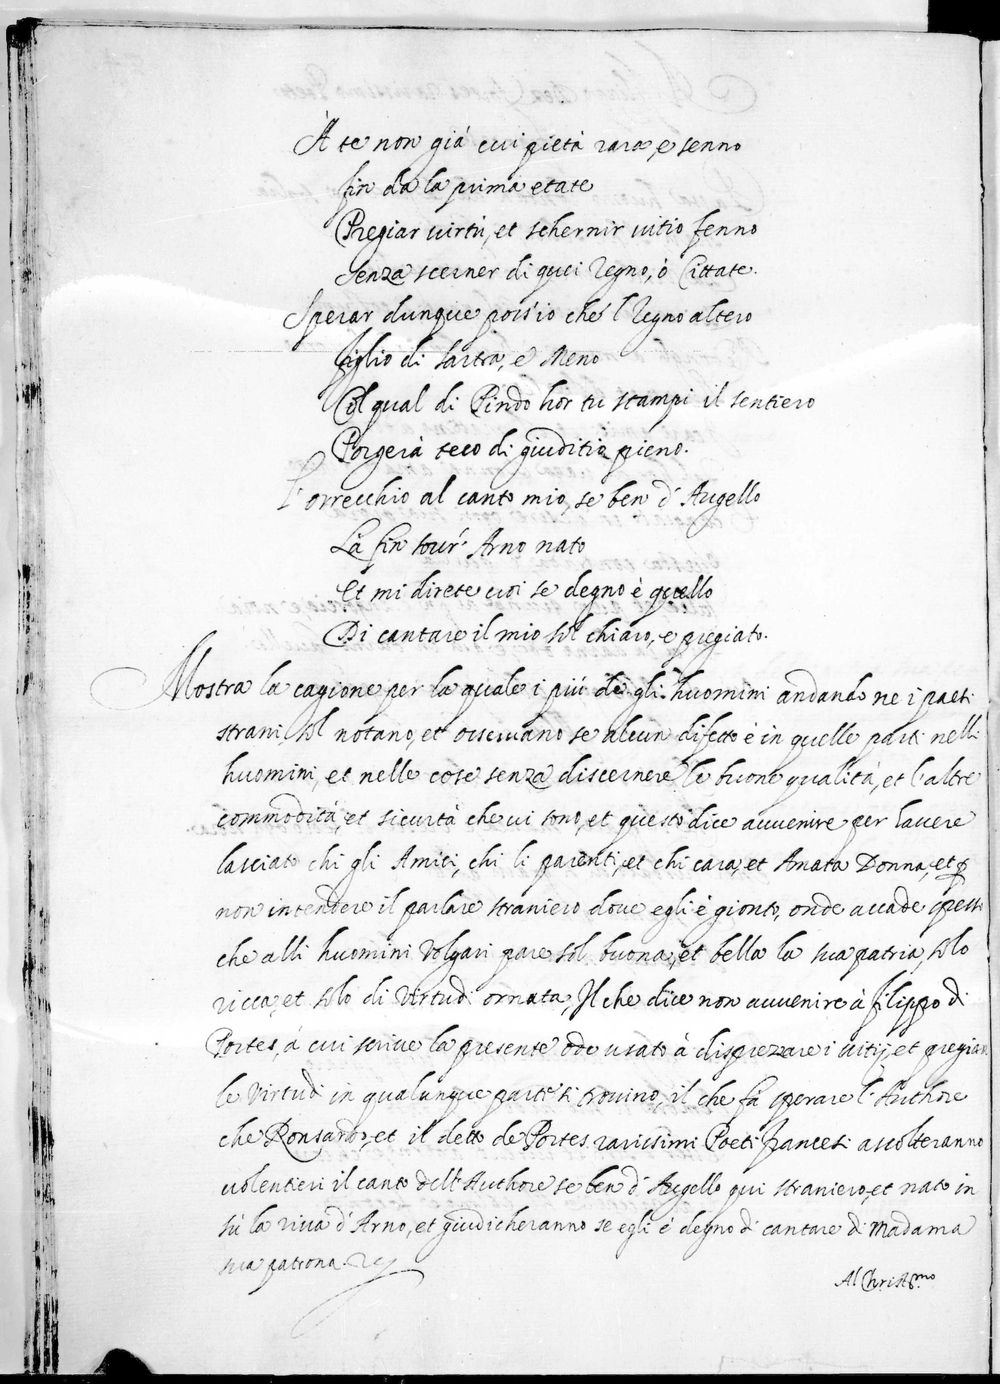 À te non già cui pietà rara, e senno
fin da la prima etate
Pregiar virtù, et schernir vitio fenno
Senza scerner di quei Regno, ò Cittate.
Sperar dunque poss'io che'l Regno altero
figlio di Sartra, e Meno
Col qual di Pindo hor tu stampi il sentiero
Porgerà teco di giuditio pieno.
L'orrecchio al canto mio, se ben d'Augello
Là fin sour' Arno nato
Et mi direte voi se degno è quello
Di cantare il mio Sol chiaro, e pregiato.
Mostra la cagione per la quale i più de gli huomini andando ne i paesi
strani, sol notano, et osservano se alcun difetto è in quelle parti nelli
huomini, et nelle cose senza discernere le buone qualità, et l'altre
commodità, et sicurtà che vi sono, et questo dice avvenire per havere
lasciato chi gli Amici, chi li parenti, et chi cara, et Amata Donna, et p
non intendere il parlare straniero dove egli è gionto, onde accade spesso
che alli huomini Volgari pare sol buona, et bella la sua patria, solo
ricca, et solo di Virtudi ornata, Il che dice non avvenire à filippo di
Portes, à cui scrive la presente ode usato à disprezzare i vitij, et pregiar
le Virtudi in qualunque parte si trovino, il che fà sperare l'Authore
che Ronsardo, et il detto de Portes rarissimi Poeti francesi ascolteranno
volentieri il canto dell'Authore se ben d'Augello qui straniero, et nato in
sù la riva d'Arno, et giudicheranno se egli è degno di cantare di Madama
sua patrona.
Al Christ.mo